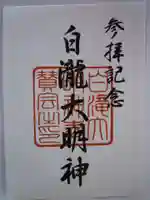 参拝記念
白瀧大明神